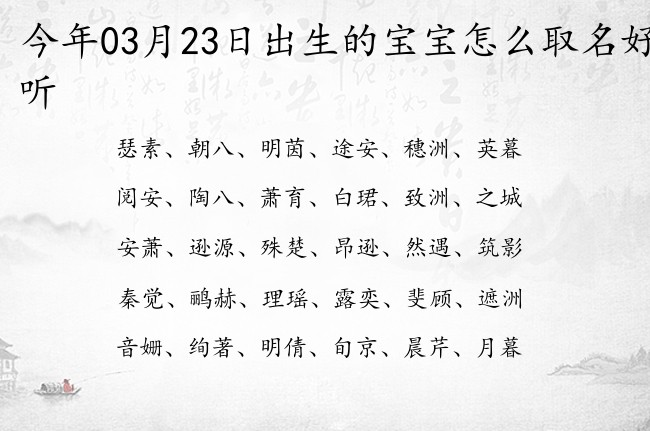 今年03月23日出生的宝宝怎么取名好
听
瑟素、朝八、明茵、途安、穗洲、英暮
阅安、陶八、萧育、白珺、致洲、之城
安萧、逊源、殊楚、昂逊、然遇、筑影
秦觉、鹂赫、理瑶、露奕、斐顾、遮洲
音姗、绚著、明倩、旬京、晨芹、月暮